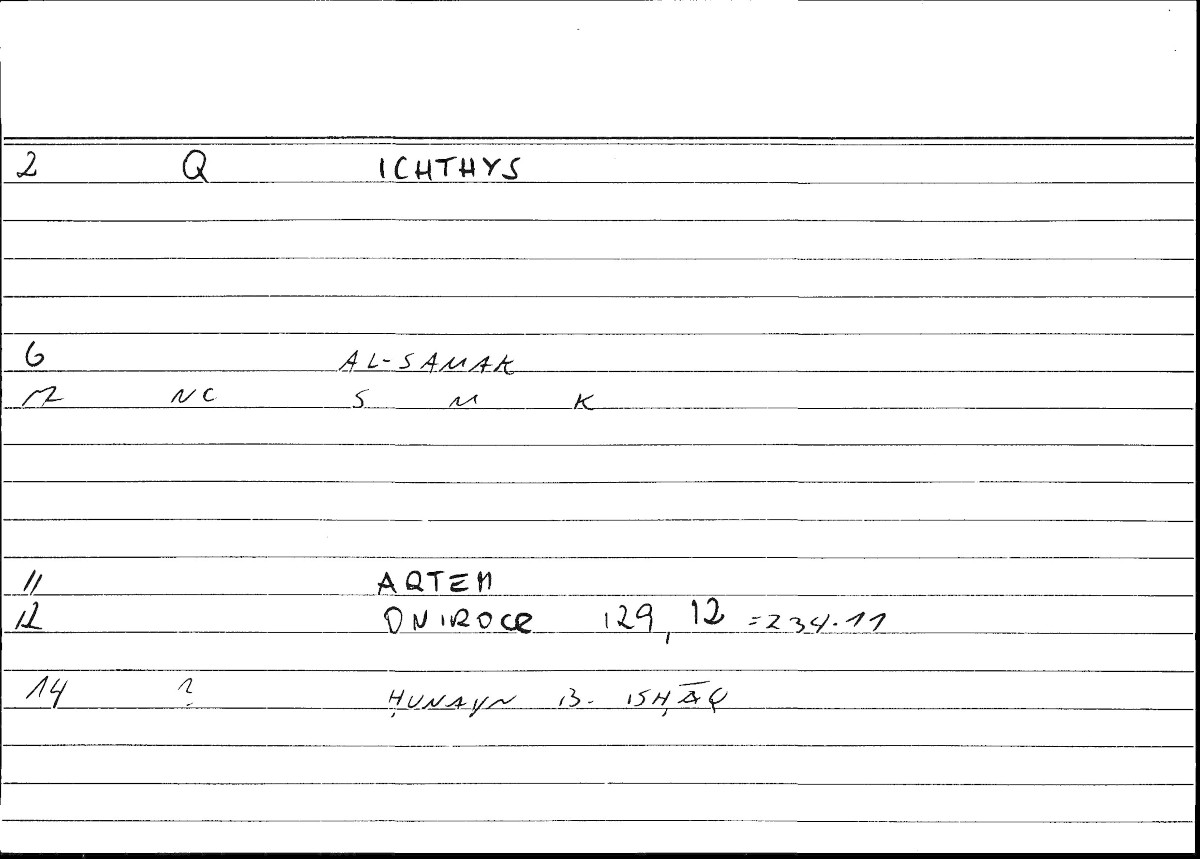 2 Q ICHTHYS
6 AL-SAMAK
NC S M K
11 ARTEM
12 ONIROCR 129, 12 =234.11
14 ? ḤUNAYN B. ISḤĀQ